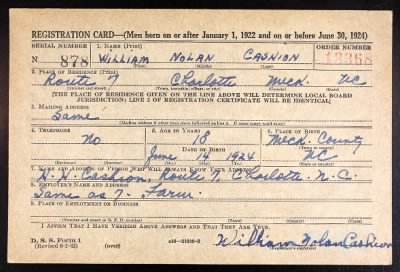 REGISTRATION CARD—(Men born on or after January 1, 1922 and on or before June 30, 1924)
SERIAL NUMBER 1. NAME (Print) ORDER NUMBER
N 878 WILLIAM NOLAN CASHION 13368
(First) (Middle) (Last)
2. PLACE OF RESIDENCE (Print)
Route Charlotte Meck. NC
(Number and street) (Town, township, village, or city) (County) (State)
[THE PLACE OF RESIDENCE GIVEN ON THE LINE ABOVE WILL DETERMINE LOCAL BOARD
JURISDICTION; LINE 2 OF REGISTRATION CERTIFICATE WILL BE IDENTICAL]
3. MAILING ADDRESS
Same
(Mailing address if other than place indicated on line 2. If same insert word same)
4. TELEPHONE 5. AGE IN YEARS 6. PLACE OF BIRTH
No 18 Meck. County
DATE OF BIRTH (Town or county)
June 14 1924 NC
(Exchange) (Number) (Mo.) (Day) (Yr.) (State or country)
7. NAME AND ADDRESS OF PERSON WHO WILL ALWAYS KNOW YOUR ADDRESS
Cashion, Route Charlotte, N.C.
8. EMPLOYER'S NAME AND ADDRESS
Same as 7. Farm.
9. PLACE OF EMPLOYMENT OR BUSINESS
(Number and street or R. F. D. number) (Town) (County) (State)
I AFFIRM THAT I HAVE VERIFIED ABOVE ANSWERS AND THAT THEY ARE TRUE.
D. S. S. Form 1
(Revised 6-1-42) (over) William Nolan Cashion
(Registrant's signature)